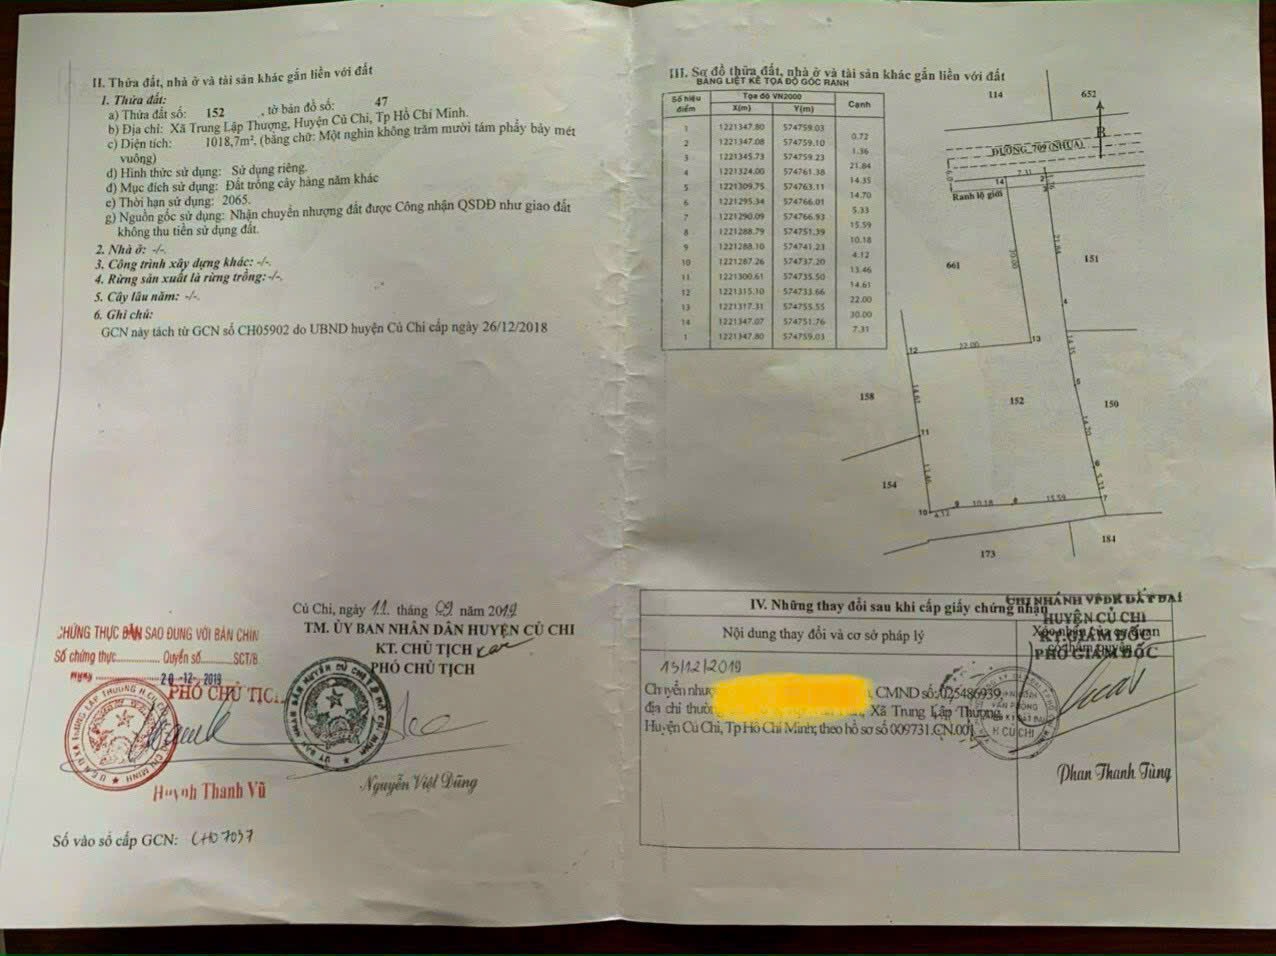 II. Thửa đất, nhà ở và tài sản khác gắn liền với đất
1. Thửa đất:
a) Thửa đất số: 152 , tờ bản đồ số: 47
b) Địa chỉ: Xã Trung Lập Thượng, Huyện Củ Chi, Tp Hồ Chí Minh.
c) Diện tích: 1018,7m², (bằng chữ: Một nghìn không trăm mười tám phẩy bảy mét
vuông)
d) Hình thức sử dụng: Sử dụng riêng.
đ) Mục đích sử dụng: Đất trồng cây hàng năm khác
e) Thời hạn sử dụng: 2065.
g) Nguồn gốc sử dụng: Nhận chuyển nhượng đất được Công nhận QSDĐ như giao đất
không thu tiền sử dụng đất.
2. Nhà ở: -/-.
3. Công trình xây dựng khác: -/-.
4. Rừng sản xuất là rừng trồng: -/-.
5. Cây lâu năm: -/-.
6. Ghi chú:
GCN này tách từ GCN số CH05902 do UBND huyện Củ Chi cấp ngày 26/12/2018
Củ Chi, ngày 11 tháng 09 năm 2019
TM. ỦY BAN NHÂN DÂN HUYỆN CỦ CHI
KT. CHỦ TỊCH
PHÓ CHỦ TỊCH
Nguyễn Việt Dũng
CHỨNG THỰC BẢN SAO ĐÚNG VỚI BẢN CHÍNH
Số chứng thực............ Quyển số........SCT/B
Ngày 20-12-2019
PHÓ CHỦ TỊCH
Huỳnh Thanh Vũ
Số vào sổ cấp GCN: CH07037
III. Sơ đồ thửa đất, nhà ở và tài sản khác gắn liền với đất
BẢNG LIỆT KÊ TỌA ĐỘ GÓC RANH
Số hiệu điểm Tọa độ VN2000 Cạnh
X(m) Y(m)
1 1221347.80 574759.03
0.72
2 1221347.08 574759.10
1.36
3 1221345.73 574759.23
21.84
4 1221324.00 574761.38
14.35
5 1221309.75 574763.11
14.70
6 1221295.34 574766.01
5.33
7 1221290.09 574766.93
15.59
8 1221288.79 574751.39
10.18
9 1221288.10 574741.23
4.12
10 1221287.26 574737.20
13.46
11 1221300.61 574735.50
14.61
12 1221315.10 574733.66
22.00
13 1221317.31 574755.55
30.00
14 1221347.07 574751.76
7.31
1 1221347.80 574759.03
114 652
B
ĐƯỜNG 709 (NHỰA)
6.0
7.31
14 2
1.36
Ranh lộ giới
30.00 21.84
661 151
4
12 22.00 13
14.35
14.61
5
158 152 150
14.70
11
13.46
6
5.33
154
10 4.12 9 10.18 8 15.59 7
173 184
IV. Những thay đổi sau khi cấp giấy chứng nhận
Nội dung thay đổi và cơ sở pháp lý
Xác nhận của cơ quan
có thẩm quyền
CHI NHÁNH VPĐK ĐẤT ĐAI
HUYỆN CỦ CHI
KT.GIÁM ĐỐC
PHÓ GIÁM ĐỐC
13/12/2019
Chuyển nhượ , CMND số: 025486939,
địa chỉ thường , Xã Trung Lập Thượng,
Huyện Củ Chi, Tp Hồ Chí Minh; theo hồ sơ số 009731.CN.001.
VĂN PHÒNG
H CỦ CHI
Phan Thanh Tùng